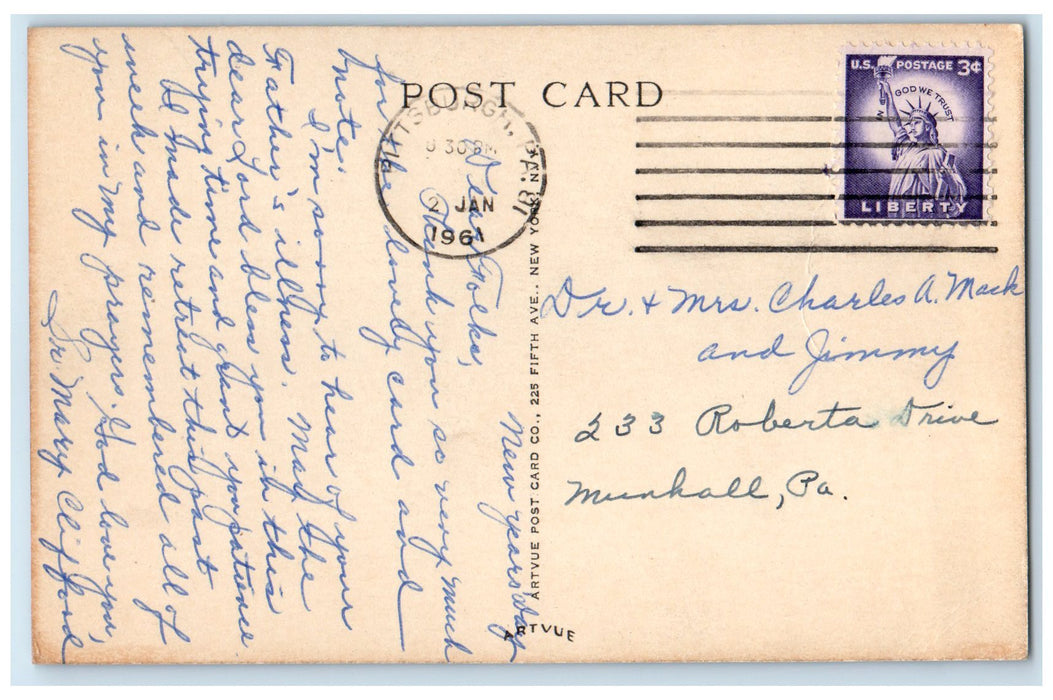 POST CARD
PITTSBURGH, PA. 81
9 30 PM
2 JAN
1961
U.S. POSTAGE 3¢
IN GOD WE TRUST
LIBERTY
New Years Day
Dear Folks,
Thank you so very much
for the lovely card and
note.
I'm sorry to hear of your
Father's illness. May the
dear Lord bless you in this
trying time and grant you patience.
I made retreat this past
week and remembered all of
you in my prayers. God love you,
Sr. Mary Clifford
ARTVUE POST CARD CO., 225 FIFTH AVE., NEW YORK, N.Y.
ARTVUE
Dr. + Mrs. Charles A. Mack
and Jimmy
233 Roberta Drive
Munhall, Pa.